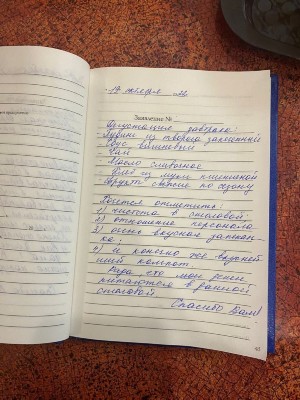 - 19 ноября 22
Заявление №
Дегустация завтрака:
Пудинг из творога запеченный
Соус вишневый
Чай
Масло сливочное
Хлеб из муки пшеничной
Фрукт свежие по сезону
Хочется отметить:
1) чистота в столовой;
2) отношение персонала
3) очень вкусная запекан-
ка;
4) и конечно же вкусней-
ший компот.
Рада, что мои дети
питаются в данной
столовой
Спасибо Вам!